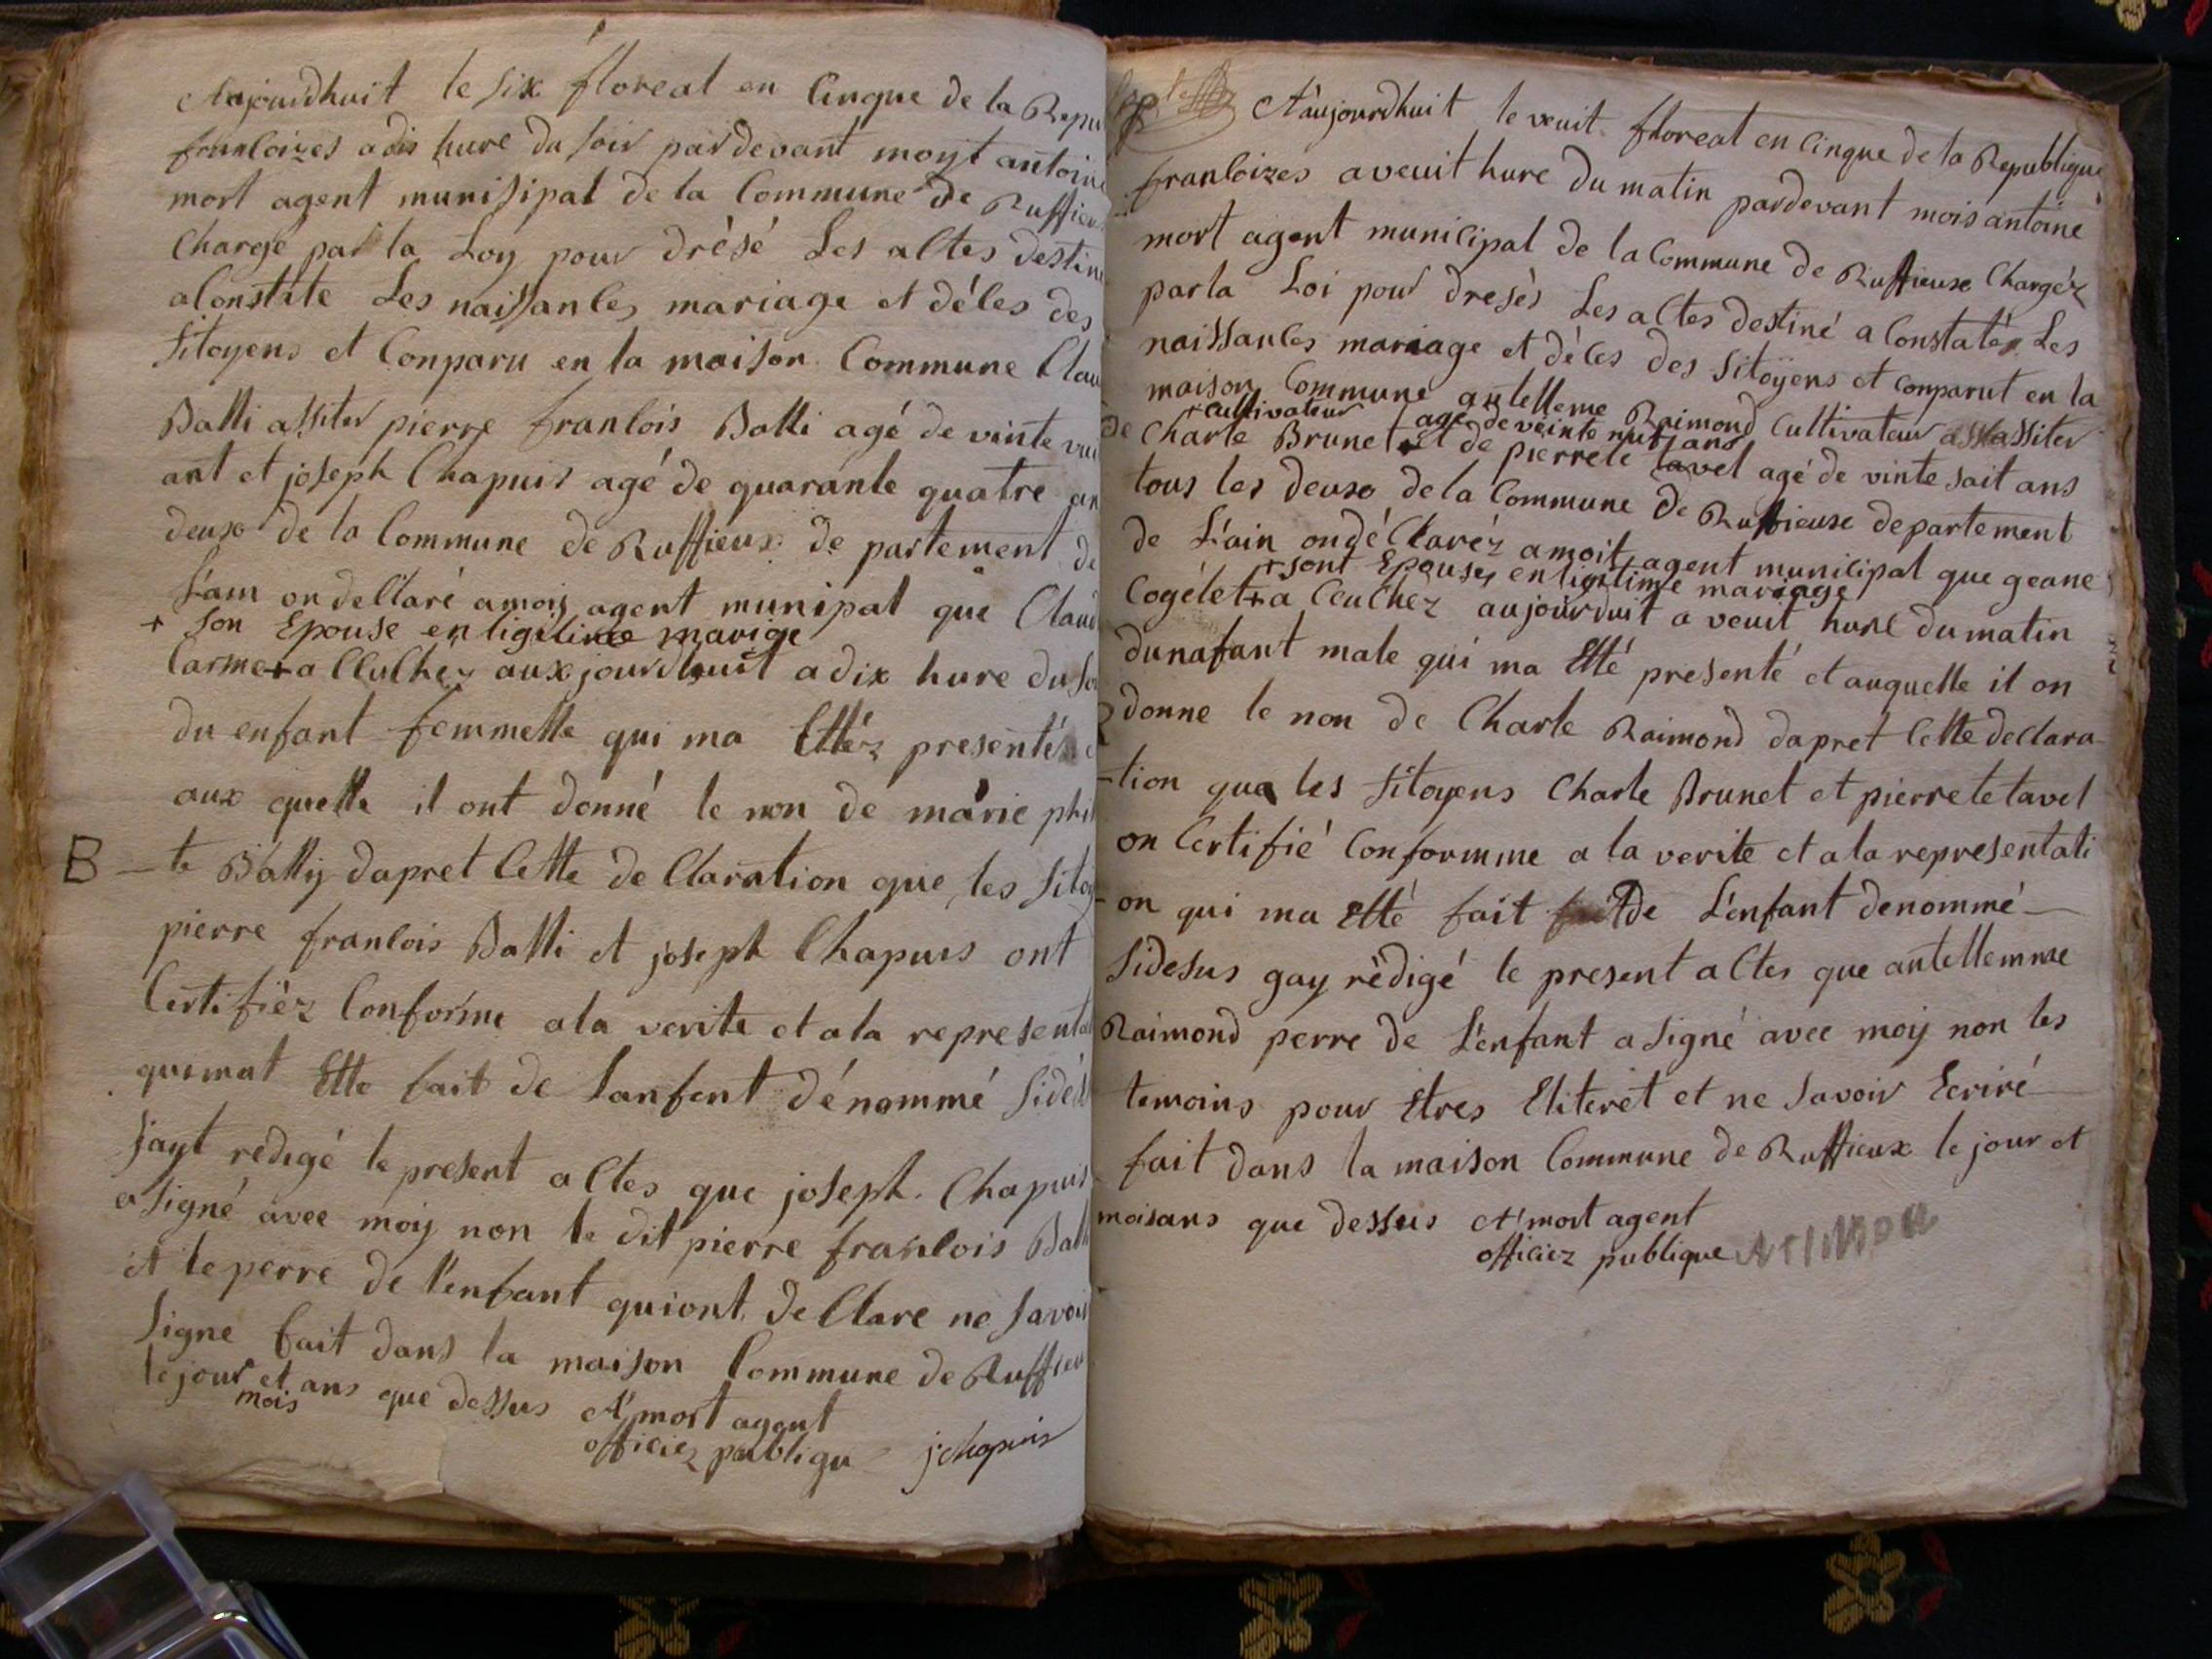 Aujourdhuit le six floreal en Cinque de la Repu
francoizes a dis hure du soir pardevant moyt antoine
mort agent munisipal de la Commune de Ruffieu
Chargé par la Loy pour drésé Les actes destine
a Constate Les naissances mariage et déces des
sitoyens et Conparu en la maison Commune Clau
Balli assiter pierre francois Balli agé de vinte vui
ant et joseph Chapuis agé de quarante quatre an
deuse de la Commune de Ruffieux de partement de
L'ain on declaré a mois agent munipal que Claud
+ son Epouse en ligitime marige
Carme + a Cluchez aux jourdhuit a dix hure du so
du enfant femmelle qui ma Ettéz presentés
aux quelle il ont donné le non de marie phi
B - te Bally dapret Cette de Claration que les sitoy
pierre francois Balli et joseph Chapuis ont
Certifiéz Conforme a la verite et a la represent
qui mat Ette fait de Lanfent dénommé sides
jayt redigé le present actes que joseph Chapuis
a signé avec moiy non le dit pierre francois Balli
et le perre de l'enfant qui ont declare ne savoir
signe fait dans la maison Commune de Ruffieu
le jour et ans que dessus A mort agent
mois
officiez publiqu jchapuis
Aaujourdhuit le veuit floreal en Cinque de la Republique
francoizes a veuit hure du matin pardevant mois antoine
mort agent municipal de la Commune de Ruffieuse Chargéz
par la Loi pour dresés Les actes destiné a Constatér Les
naissances mariage et déces des sitoyens et Conparut en la
maison Commune antelleme Raimond Cultivateur assiter
+ Cultivateur agé de veinte nut ans
de Charle Brunet + et de pierrete tavel agé de vinte sait ans
tous les deuse de la Commune de Ruffieuse departement
de L'ain on déClaréz a moit agent municipal que geane
+ sont Epouses en ligitime mariage
Cogélet + a Ceuchez aujourduit a veuit hure du matin
dunafant male qui ma Etté presenté et auquelle il on
donne le non de Charle Raimond dapret Cette declara-
-tion que les sitoyens Charle Brunet et pierrete tavel
on Certifié Conformme a la verite et a la representati
-on qui ma etté fait de L'enfant denommé
sidesus gay rèdigé le present actes que antellemme
Raimond perre de L'enfant a signé avec moiy non les
temoins pour Etres Eliteret et ne savoir Ecriré
fait dans la maison Commune de Ruffieux le jour et
mois ans que dessus A mort agent
officiez publique